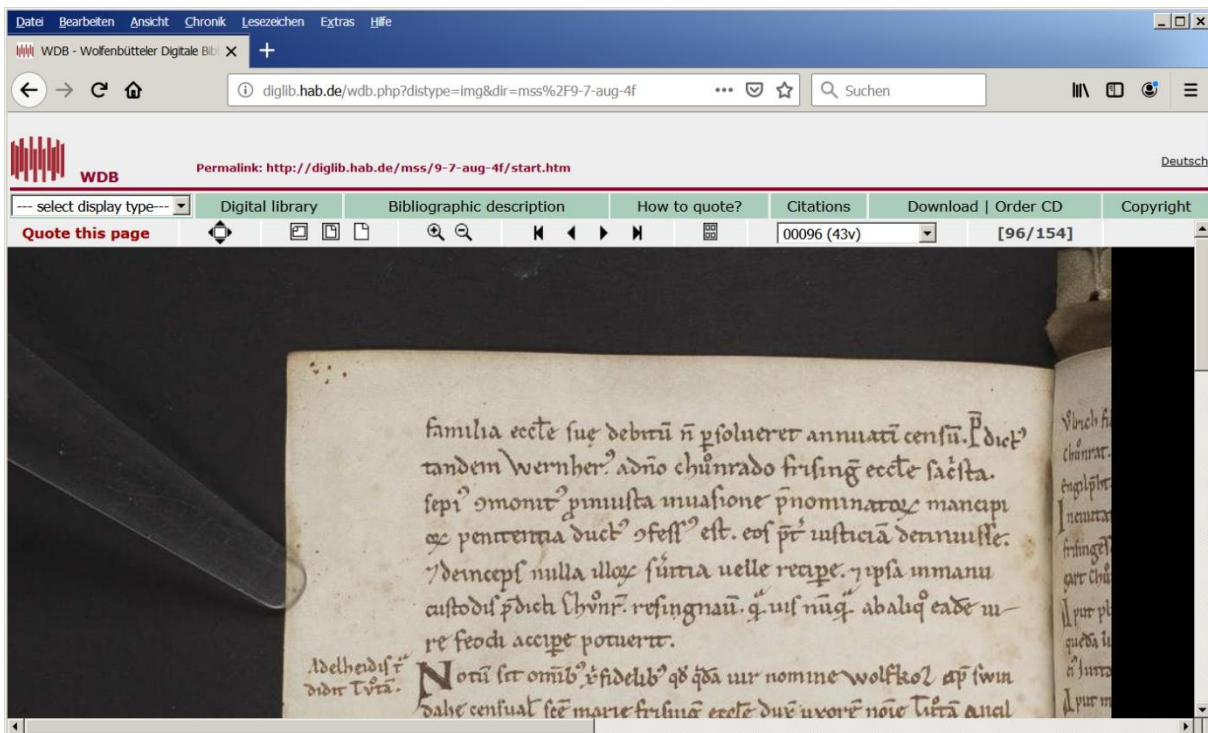 Datei Bearbeiten Ansicht Chronik Lesezeichen Extras Hilfe
WDB - Wolfenbütteler Digitale Bibl
diglib.hab.de/wdb.php?distype=img&dir=mss%2F9-7-aug-4f
Suchen
WDB
Permalink: http://diglib.hab.de/mss/9-7-aug-4f/start.htm
Deutsch
--- select display type--- Digital library Bibliographic description How to quote? Citations Download | Order CD Copyright
Quote this page 00096 (43v) [96/154]
familia eccłe suę debitū n̄ ꝑsolueret annuatī censū. P̄dict᾽
tandem Wernher᾽ adn̄o chůnrado frisinḡ eccłe sac͛sta.
sepi᾽ ꝯmonit᾽ ꝓiniusta inuasione p̄nominatoꝝ mancipi
oꝝ penitentia duct᾽ ꝯfess᾽ est. eos p̄t͛ iusticiā detinuisse.
⁊ deinceps nulla illoꝝ ſuitia uelle reciꝑe. ⁊ ipsa inmanu
custodis p̄dicti Chůnr̄. resingnau̅. nūq̄ᷓ abaliq̊ eadē iu-
re feodi acciꝑe potuerit.
Adelheidis t᷑
didit
Notū sit omīb᾽ fidelib᾽ qđ q̄dā uir nomine wolfkol ap̄ swin
dahe censual̄ sc̄ę marie frisinḡ eccłe dux̄ uxorē noīe ancil